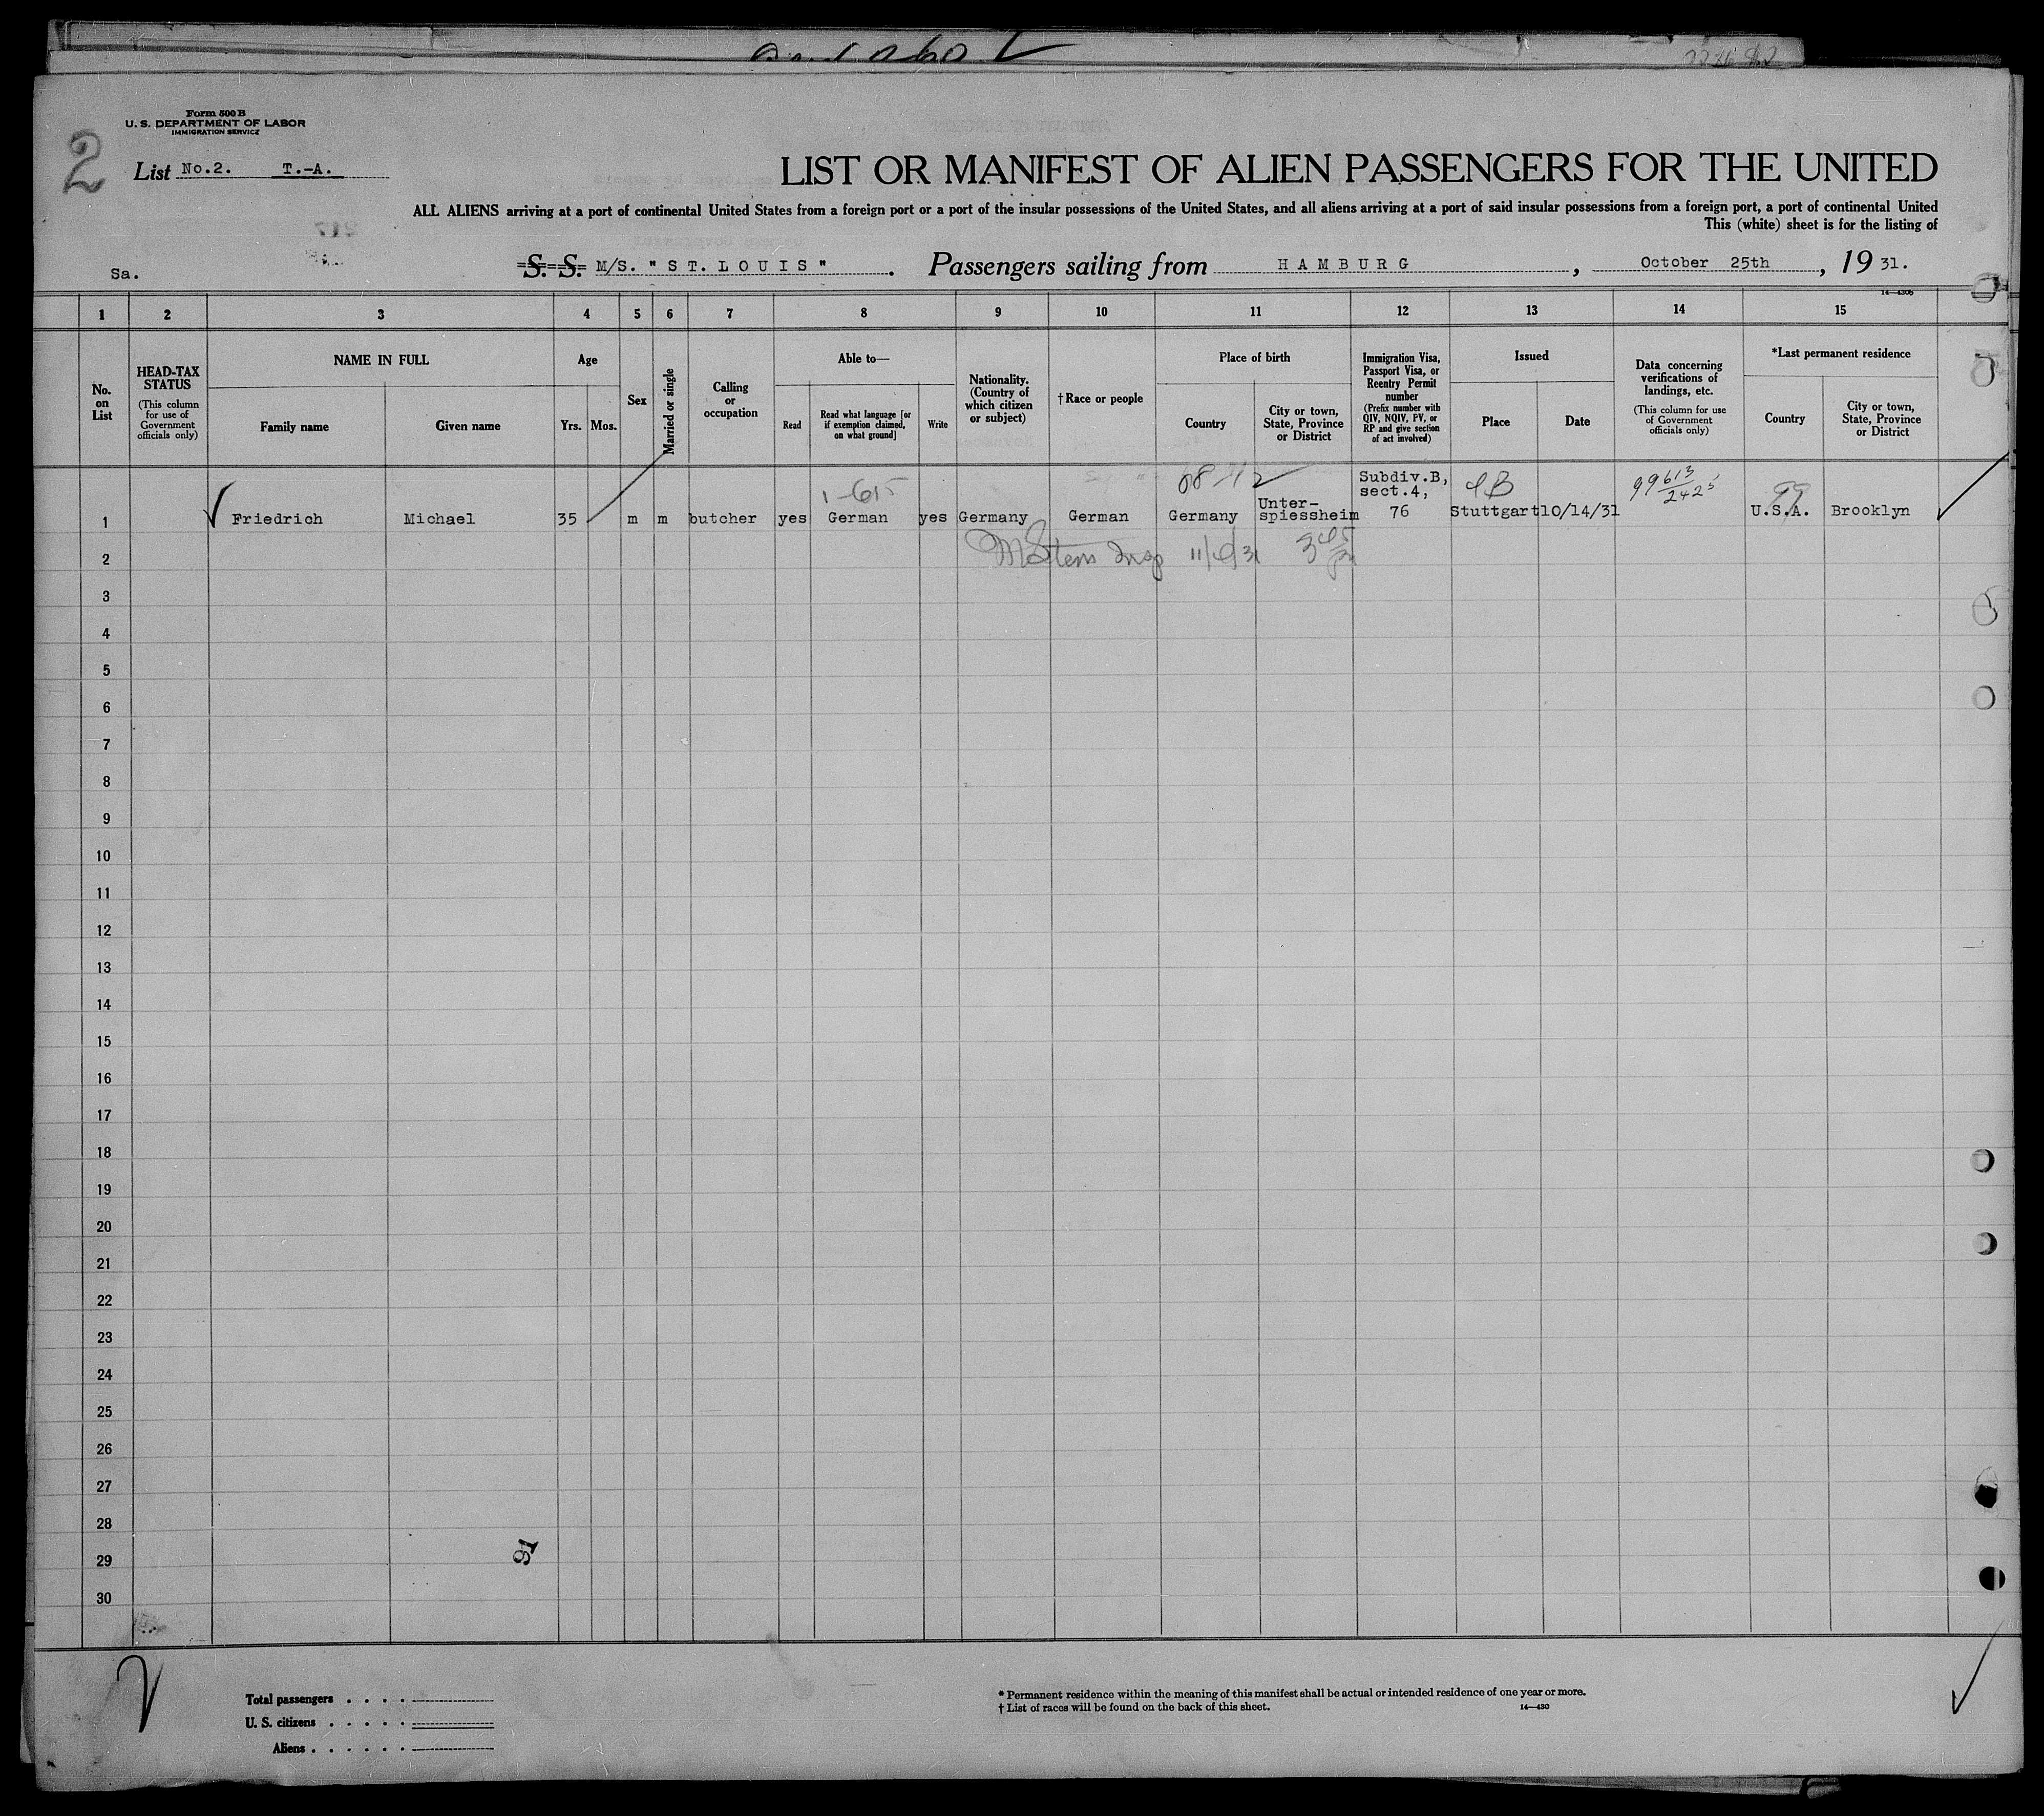 Form 500 B
U. S. DEPARTMENT OF LABOR
IMMIGRATION SERVICE
2
List No.2. T.-A.
LIST OR MANIFEST OF ALIEN PASSENGERS FOR THE UNITED
ALL ALIENS arriving at a port of continental United States from a foreign port or a port of the insular possessions of the United States, and all aliens arriving at a port of said insular possessions from a foreign port, a port of continental United
This (white) sheet is for the listing of
217
Sa.
S. S. M/S. "ST.LOUIS". Passengers sailing from HAMBURG, October 25th, 19 31.
14—430b
1 2 3 4 5 6 7 8 9 10 11 12 13 14 15
No. on List
HEAD-TAX STATUS
(This column for use of Government officials only)
NAME IN FULL
Family name
Given name
Age
Yrs.
Mos.
Sex
Married or single
Calling or occupation
Able to—
Read
Read what language [or if exemption claimed, on what ground]
Write
Nationality. (Country of which citizen or subject)
†Race or people
Place of birth
Country
City or town, State, Province or District
Immigration Visa, Passport Visa, or Reentry Permit number
(Prefix number with QIV, NQIV, PV, or RP and give section of act involved)
Issued
Place
Date
Data concerning verifications of landings, etc.
(This column for use of Government officials only)
*Last permanent residence
Country
City or town, State, Province or District
1-615
68-112
Subdiv.B, sect.4,
99 613/2425
99
1 Friedrich Michael 35 m m butcher yes German yes Germany German Germany Unter-spiessheim 76 Stuttgart 10/14/31 U.S.A. Brooklyn
2
3
4
5
6
7
8
9
10
11
12
13
14
15
16
17
18
19
20
21
22
23
24
25
26
27
28
29
30
91
Total passengers
U. S. citizens
Aliens
* Permanent residence within the meaning of this manifest shall be actual or intended residence of one year or more.
† List of races will be found on the back of this sheet. 14—430